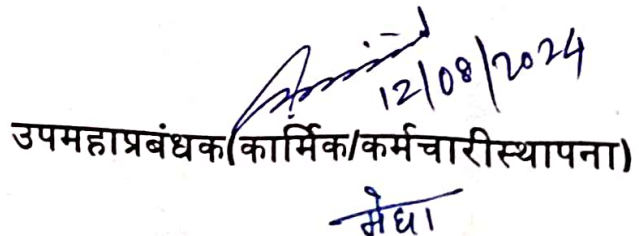 12/08/2024
उपमहाप्रबंधक(कार्मिक/कर्मचारीस्थापना)
मेधा